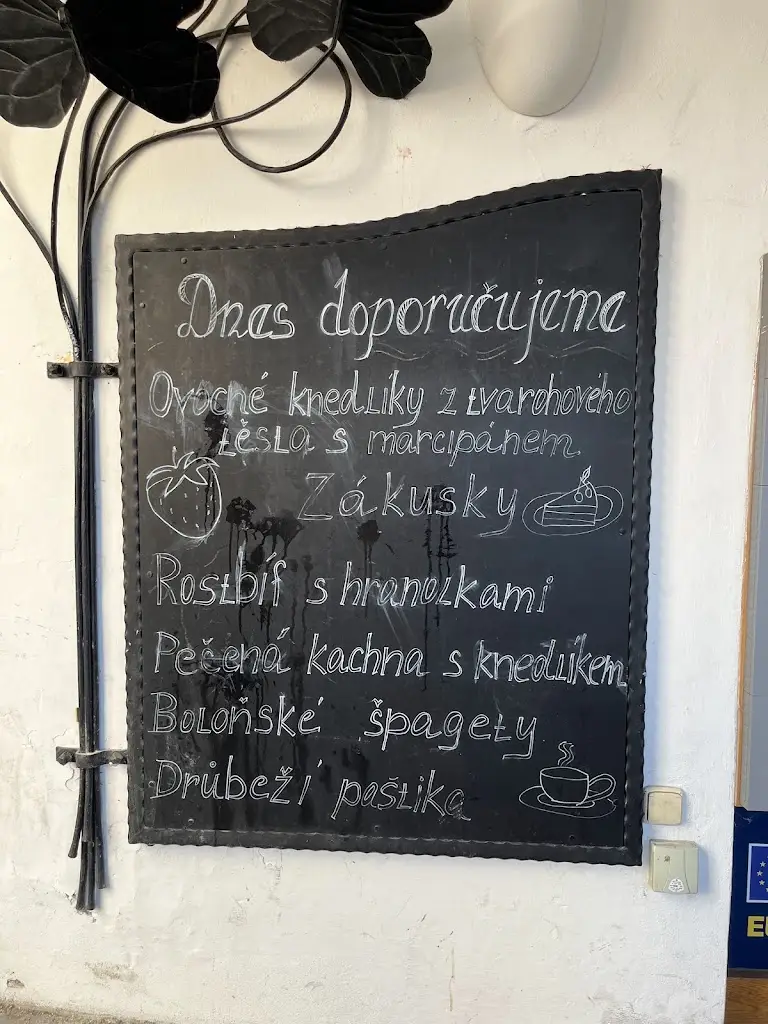 Dnes doporučujeme
Ovocné knedlíky z tvarohového
těsta s marcipánem.
Zákusky
Rostbíf s hranolkami
Pečená kachna s knedlíkem
Boloňské špagety
Drůbeží paštika